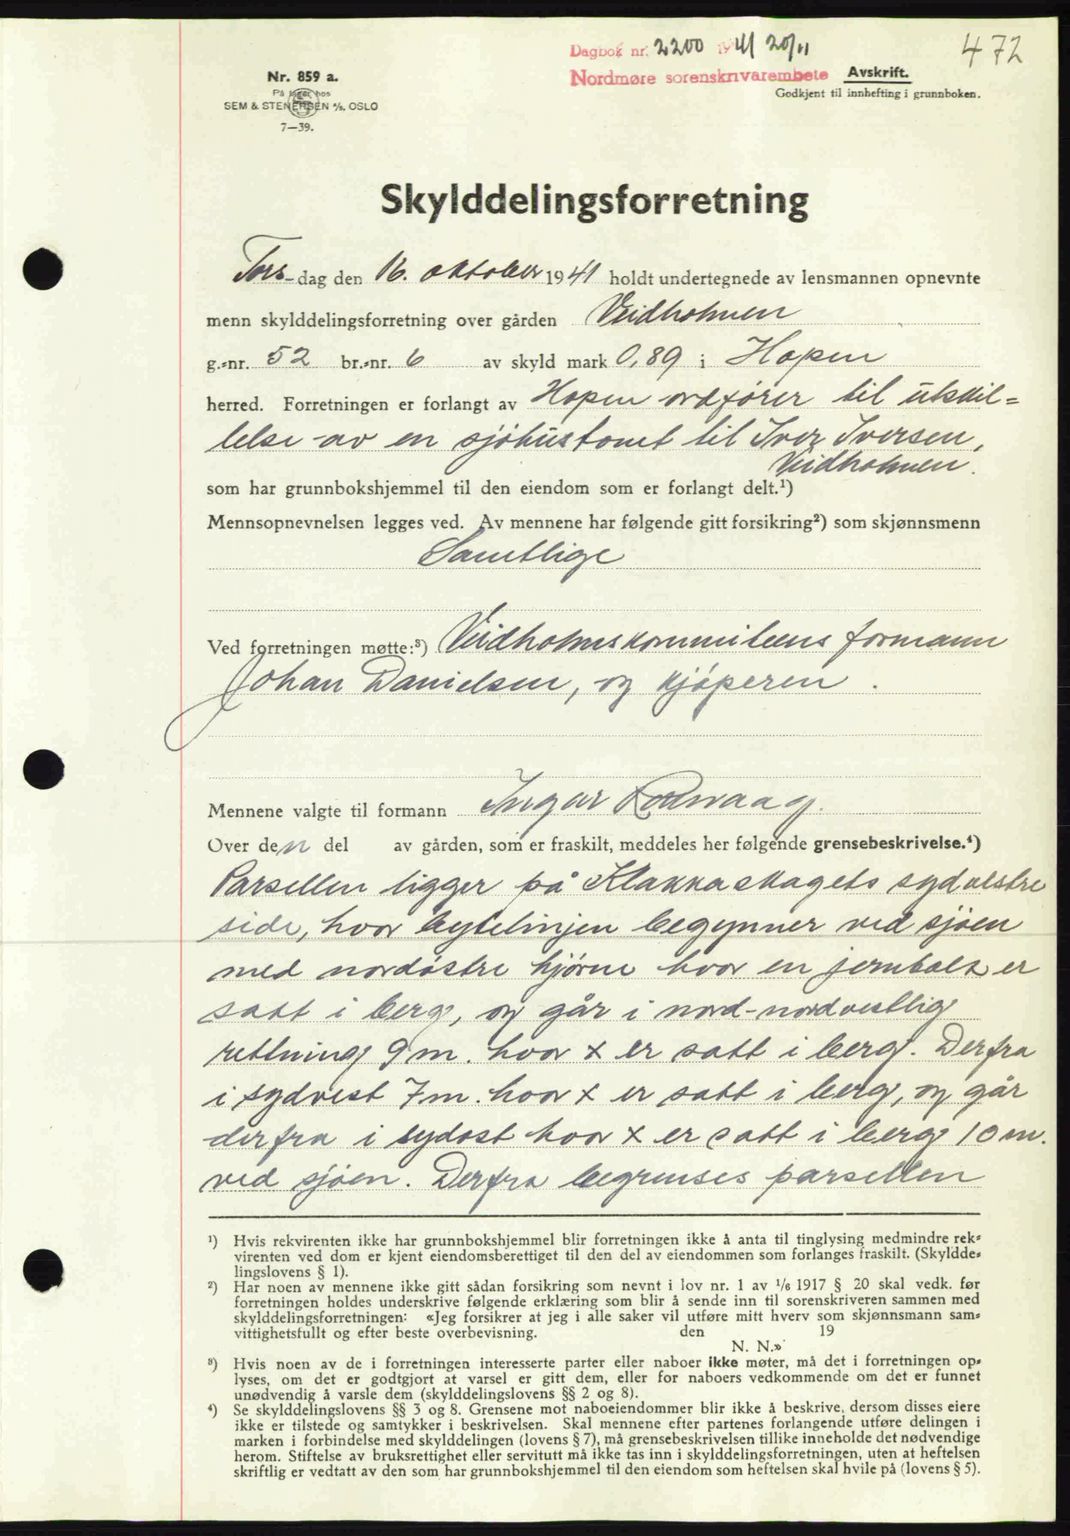 Dagbok nr. 2200 1941 20/11
472
Nordmøre sorenskrivarembete
Avskrift.
Godkjent til innhefting i grunnboken.
Nr. 859 a.
På lager hos
SEM & STENERSEN A/S, OSLO
7—39.
Skylddelingsforretning
Tors-dag den 16. oktober 1941 holdt undertegnede av lensmannen opnevnte
menn skylddelingsforretning over gården Veidholmen
g.-nr. 52 br.-nr. 6 av skyld mark 0,89 i Hopen
herred. Forretningen er forlangt av Hopen ordfører til utskil=
lelse av en sjöhustomt til Iver Iversen,
Veidholmen.
som har grunnbokshjemmel til den eiendom som er forlangt delt.¹)
Mennsopnevnelsen legges ved. Av mennene har følgende gitt forsikring²) som skjønnsmenn
Samtlige
Ved forretningen møtte:³) Veidholmskommiteens formann
Johan Danielsen, og kjöperen.
Mennene valgte til formann Ingar
Over den del av gården, som er fraskilt, meddeles her følgende grensebeskrivelse.⁴)
Parsellen ligger på Klakkaskagets sydvestre
side, hvor bytelinjen begynner ved sjöen
med nordöstre hjörne hvor en jernbolt er
satt i berg, og går i nord-nordvestlig
rettning 9 m. hvor x er satt i berg. Derfra
i sydvest 7 m. hvor x er satt i berg, og går
derfra i sydost hvor x er satt i berg 10 m.
ved sjöen. Derfra begrenses parsellen
¹) Hvis rekvirenten ikke har grunnbokshjemmel blir forretningen ikke å anta til tinglysing medmindre rek-
virenten ved dom er kjent eiendomsberettiget til den del av eiendommen som forlanges fraskilt. (Skyldde-
lingslovens § 1).
²) Har noen av mennene ikke gitt sådan forsikring som nevnt i lov nr. 1 av 1/6 1917 § 20 skal vedk. før
forretningen holdes underskrive følgende erklæring som blir å sende inn til sorenskriveren sammen med
skylddelingsforretningen: «Jeg forsikrer at jeg i alle saker vil utføre mitt hverv som skjønnsmann sam-
vittighetsfullt og efter beste overbevisning. den 19
N. N.»
³) Hvis noen av de i forretningen interesserte parter eller naboer ikke møter, må det i forretningen op-
lyses, om det er godtgjort at varsel er gitt dem, eller for naboers vedkommende om det er funnet
unødvendig å varsle dem (skylddelingslovens §§ 2 og 8).
⁴) Se skylddelingslovens §§ 3 og 8. Grensene mot naboeiendommer blir ikke å beskrive, dersom disses eiere
ikke er tilstede og samtykker i beskrivelsen. Skal mennene efter partenes forlangende utføre delingen i
marken i forbindelse med skylddelingen (lovens § 7), må grensebeskrivelsen tillike inneholde det nødvendige
herom. Stiftelse av bruksrettighet eller servitutt må ikke tas inn i skylddelingsforretningen, uten at heftelsen
skriftlig er vedtatt av den som har grunnbokshjemmel til den eiendom som heftelsen skal hvile på (lovens § 5).